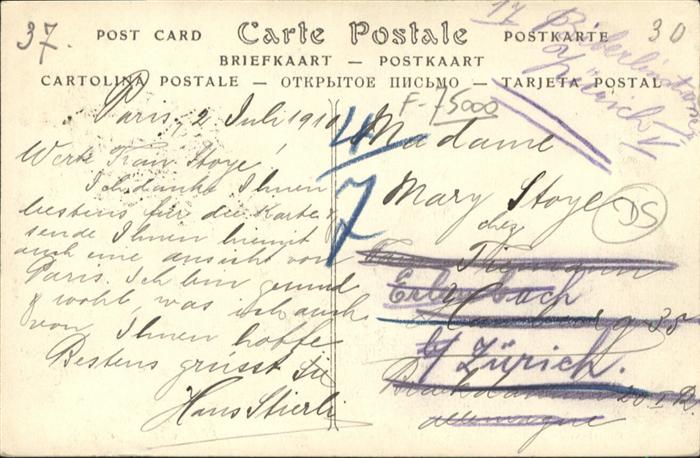 37.
POST CARD Carte Postale POSTKARTE
30
BRIEFKAART — POSTKAART
CARTOLINA POSTALE — ОТКРЫТОЕ ПИСЬМО — TARJETA POSTAL
17
Zürich V
F-75000
Paris, 2 Juli 191
Werte Frau Stoye!
Ich danke Ihnen
bestens für die Karte &
sende Ihnen hiermit
auch eine ansicht von
Paris. Ich bin gesund
& wohl, was ich auch
von Ihnen hoffe
Bestens grüsst Sie
Hans Stierli
4
7
Madame
Mary Stoye
DS
chez
Tiemann
Erlenbach
Hamburg 35
b/ Zürich.
allemagne